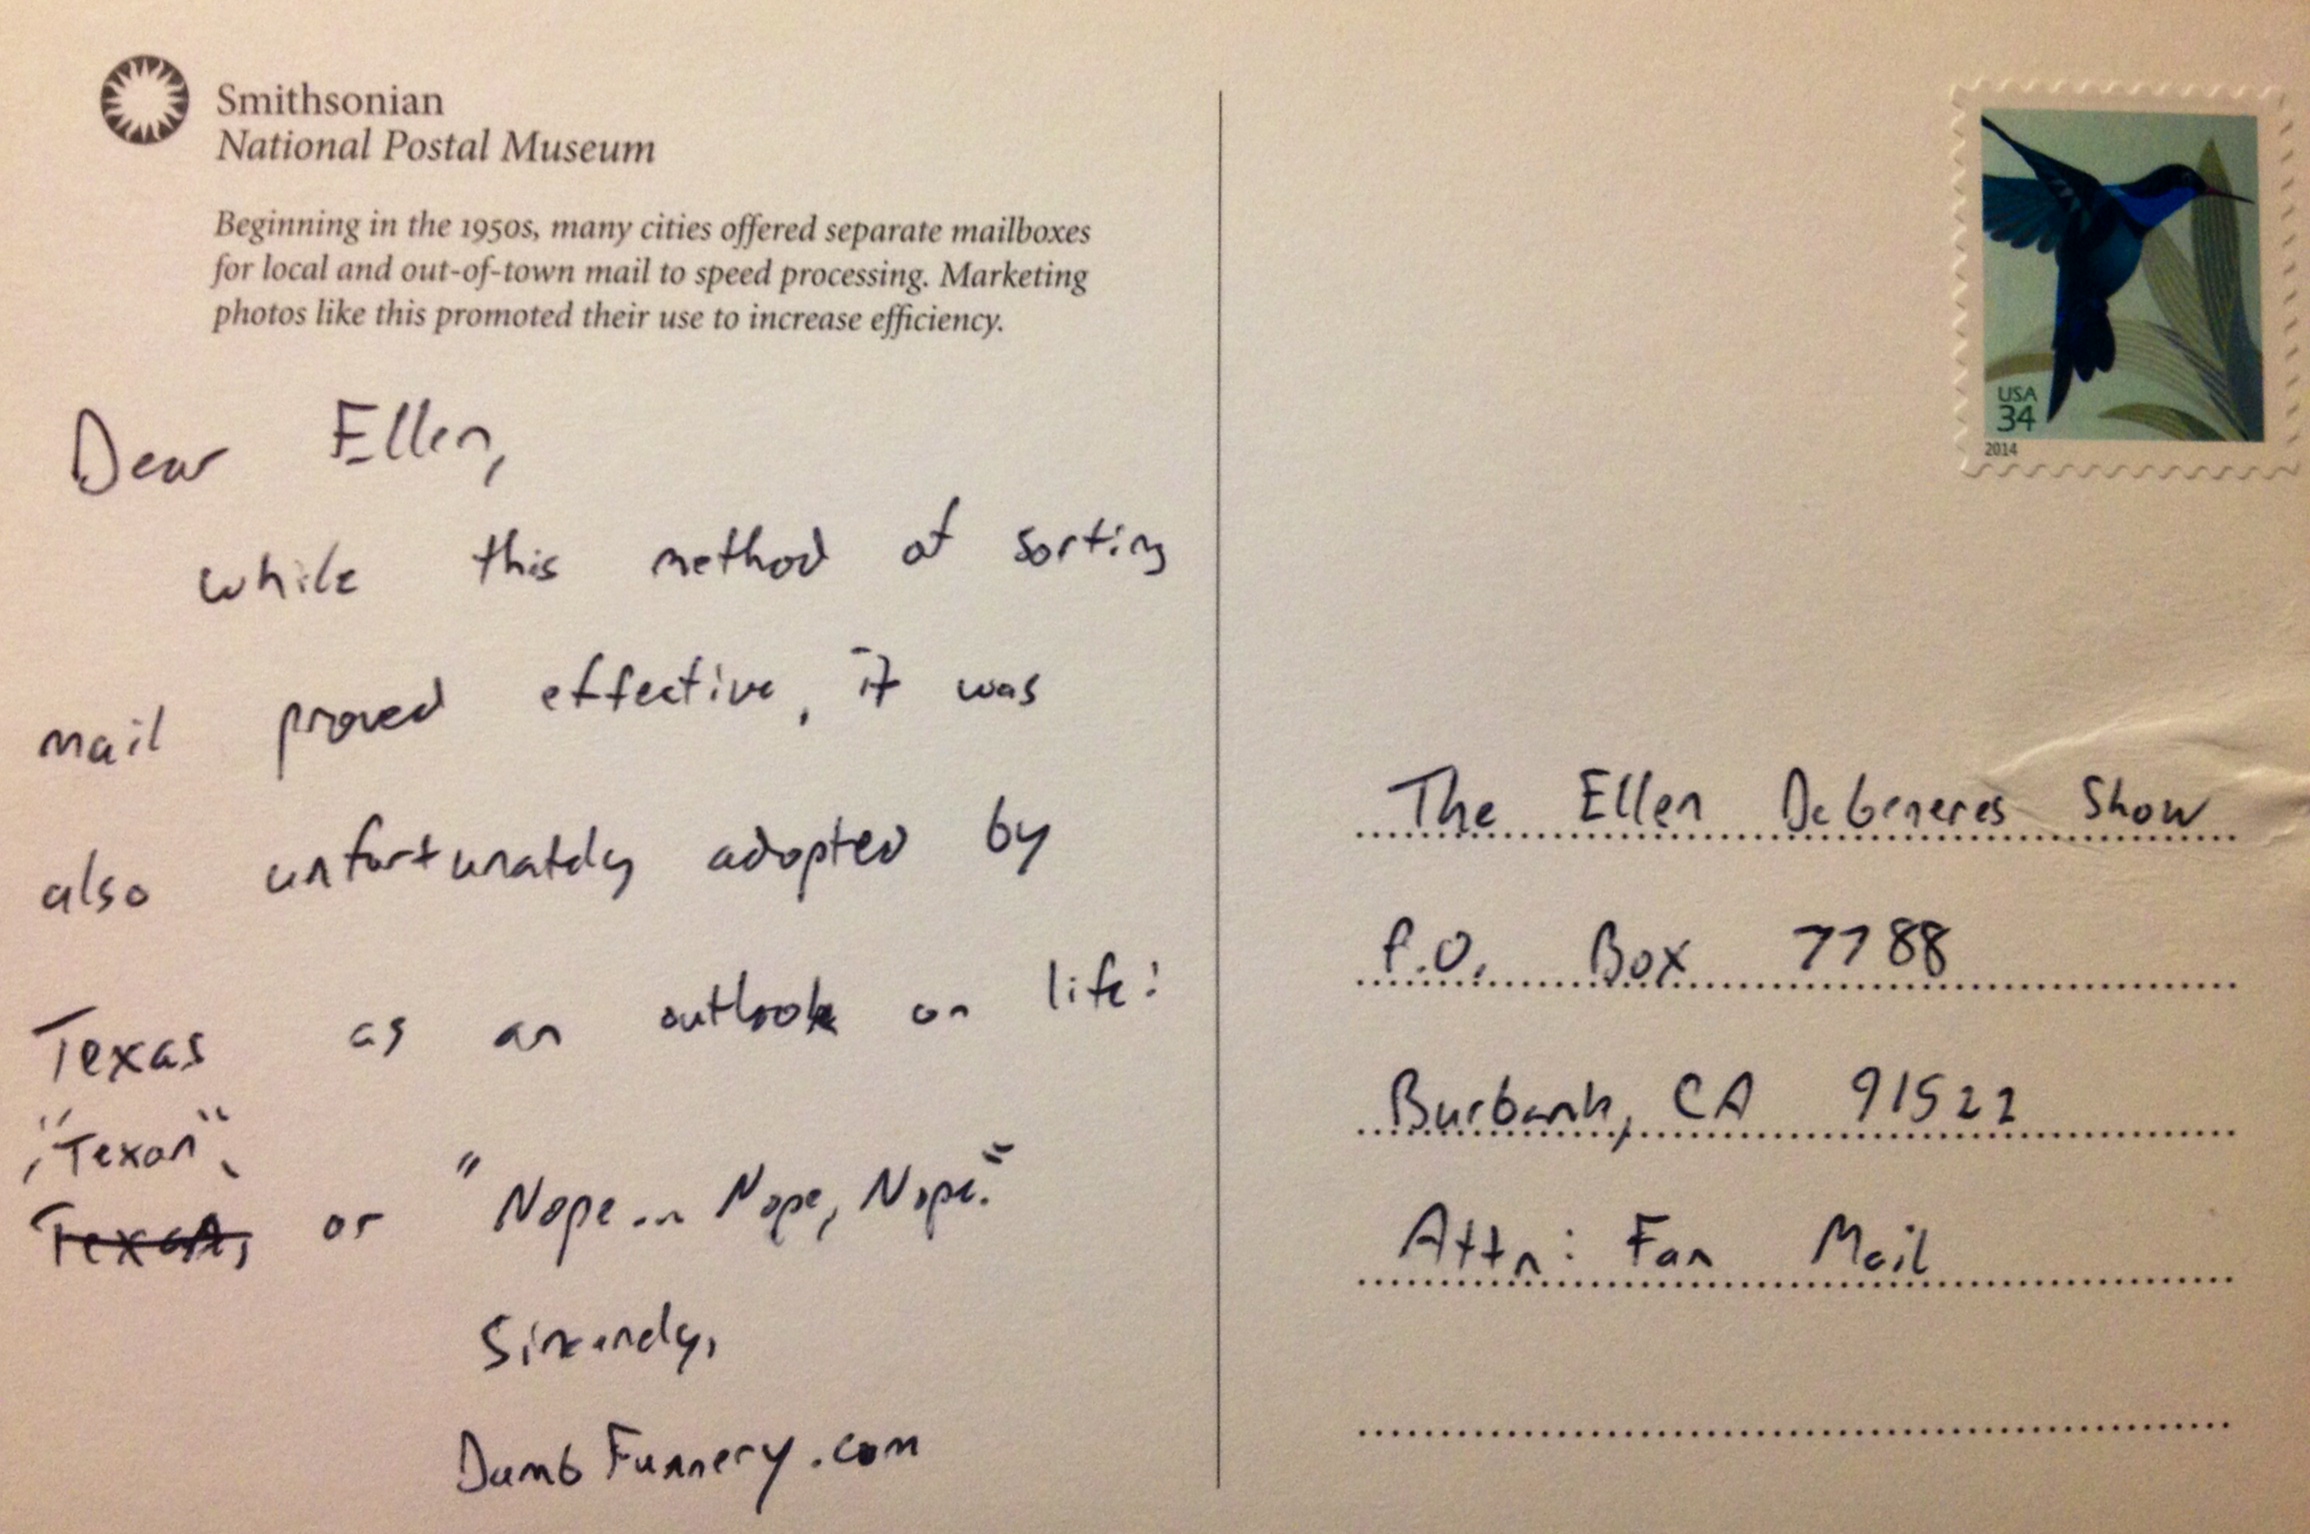 Smithsonian
National Postal Museum
Beginning in the 1950s, many cities offered separate mailboxes
for local and out-of-town mail to speed processing. Marketing
photos like this promoted their use to increase efficiency.
Dear Ellen,
while this method of sorting
mail proved effective, it was
also unfortunately adopted by
Texas as an outlook on life:
"Texan"
Texan, or "Nope... Nope, Nope."
Sincerely,
DumbFunnery.com
USA
34
2014
The Ellen DeGeneres Show
P.O. Box 7788
Burbank, CA 91522
Attn: Fan Mail